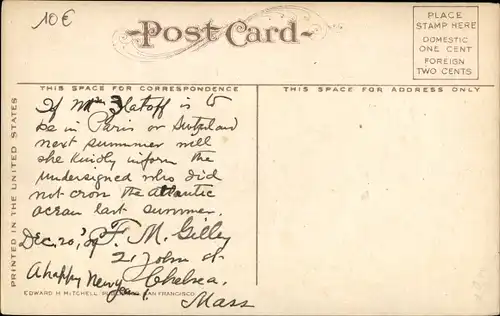 10€
Post Card.
PLACE
STAMP HERE
DOMESTIC
ONE CENT
FOREIGN
TWO CENTS
THIS SPACE FOR CORRESPONDENCE
THIS SPACE FOR ADDRESS ONLY
PRINTED IN THE UNITED STATES
If is to
be in Paris or
next summer will
she kindly inform the
undersigned who did
not cross the atlantic
ocean last summer.
Dec. 20, F. M. Gilley
21 John St
A happy New year. Chelsea,
Mass
EDWARD H MITCHELL SAN FRANCISCO